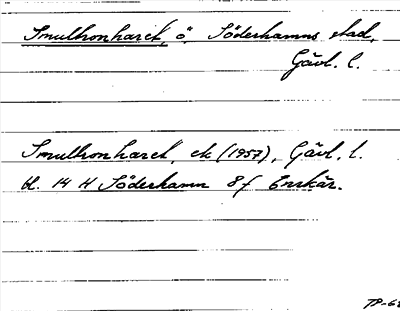 Smultronharet, ö. Söderhamns stad,
Gävl. l.
Smultronharet, ek (1957), Gävl. l.
bl. 14 H Söderhamn 8f Enskär.
TP-68